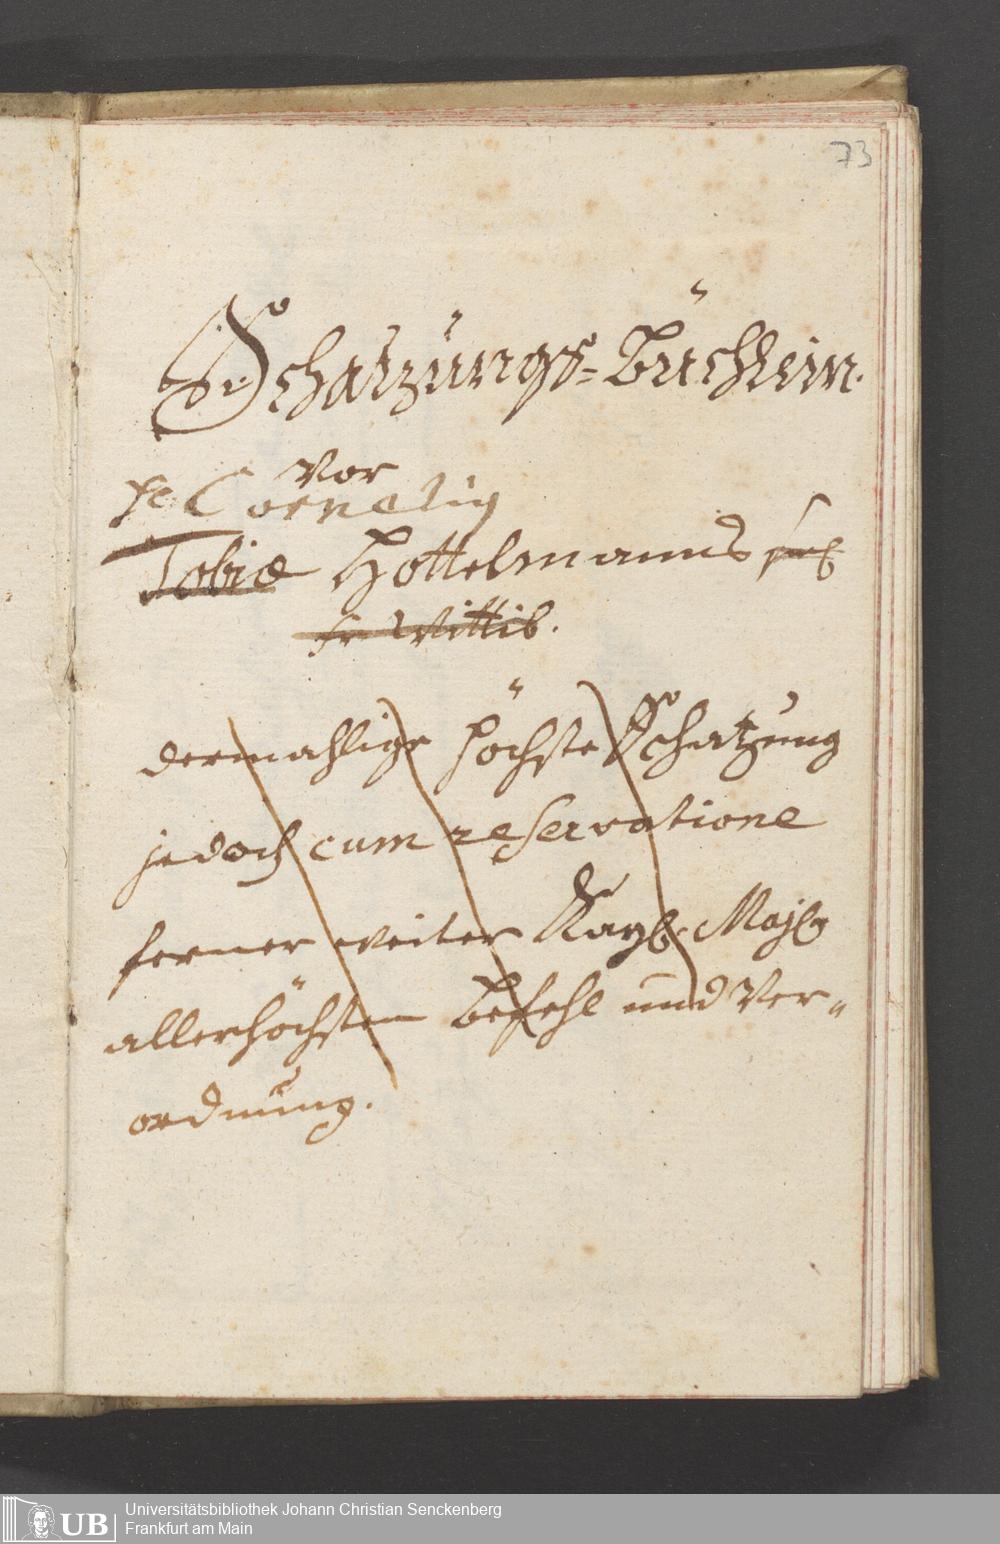 73
Schatzungs=Büchlein.
Vor
H. Cornelig
Tobiæ Hottelmanns
fr. Wittib.
dermahlige höchste Schatzung
jedoch cum reservatione
ferner weiter Kayl. Majl.
allerhöchsten befehl und Ver„
ordnung.
UB
Universitätsbibliothek Johann Christian Senckenberg
Frankfurt am Main